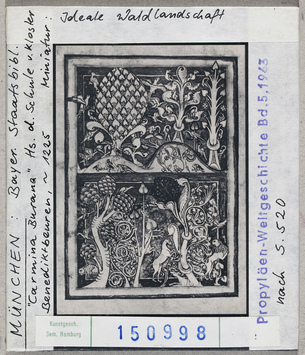 Ideale Waldlandschaft
MÜNCHEN : Bayer. Staatsbibl.
"Carmina Burana" Hs. d. Schule v. Kloster
Benediktbeuren, ~ 1225 Miniatur:
Propyläen-Weltgeschichte Bd.5, 1963
nach S. 520
Kunstgesch.
Sem. Hamburg
150998